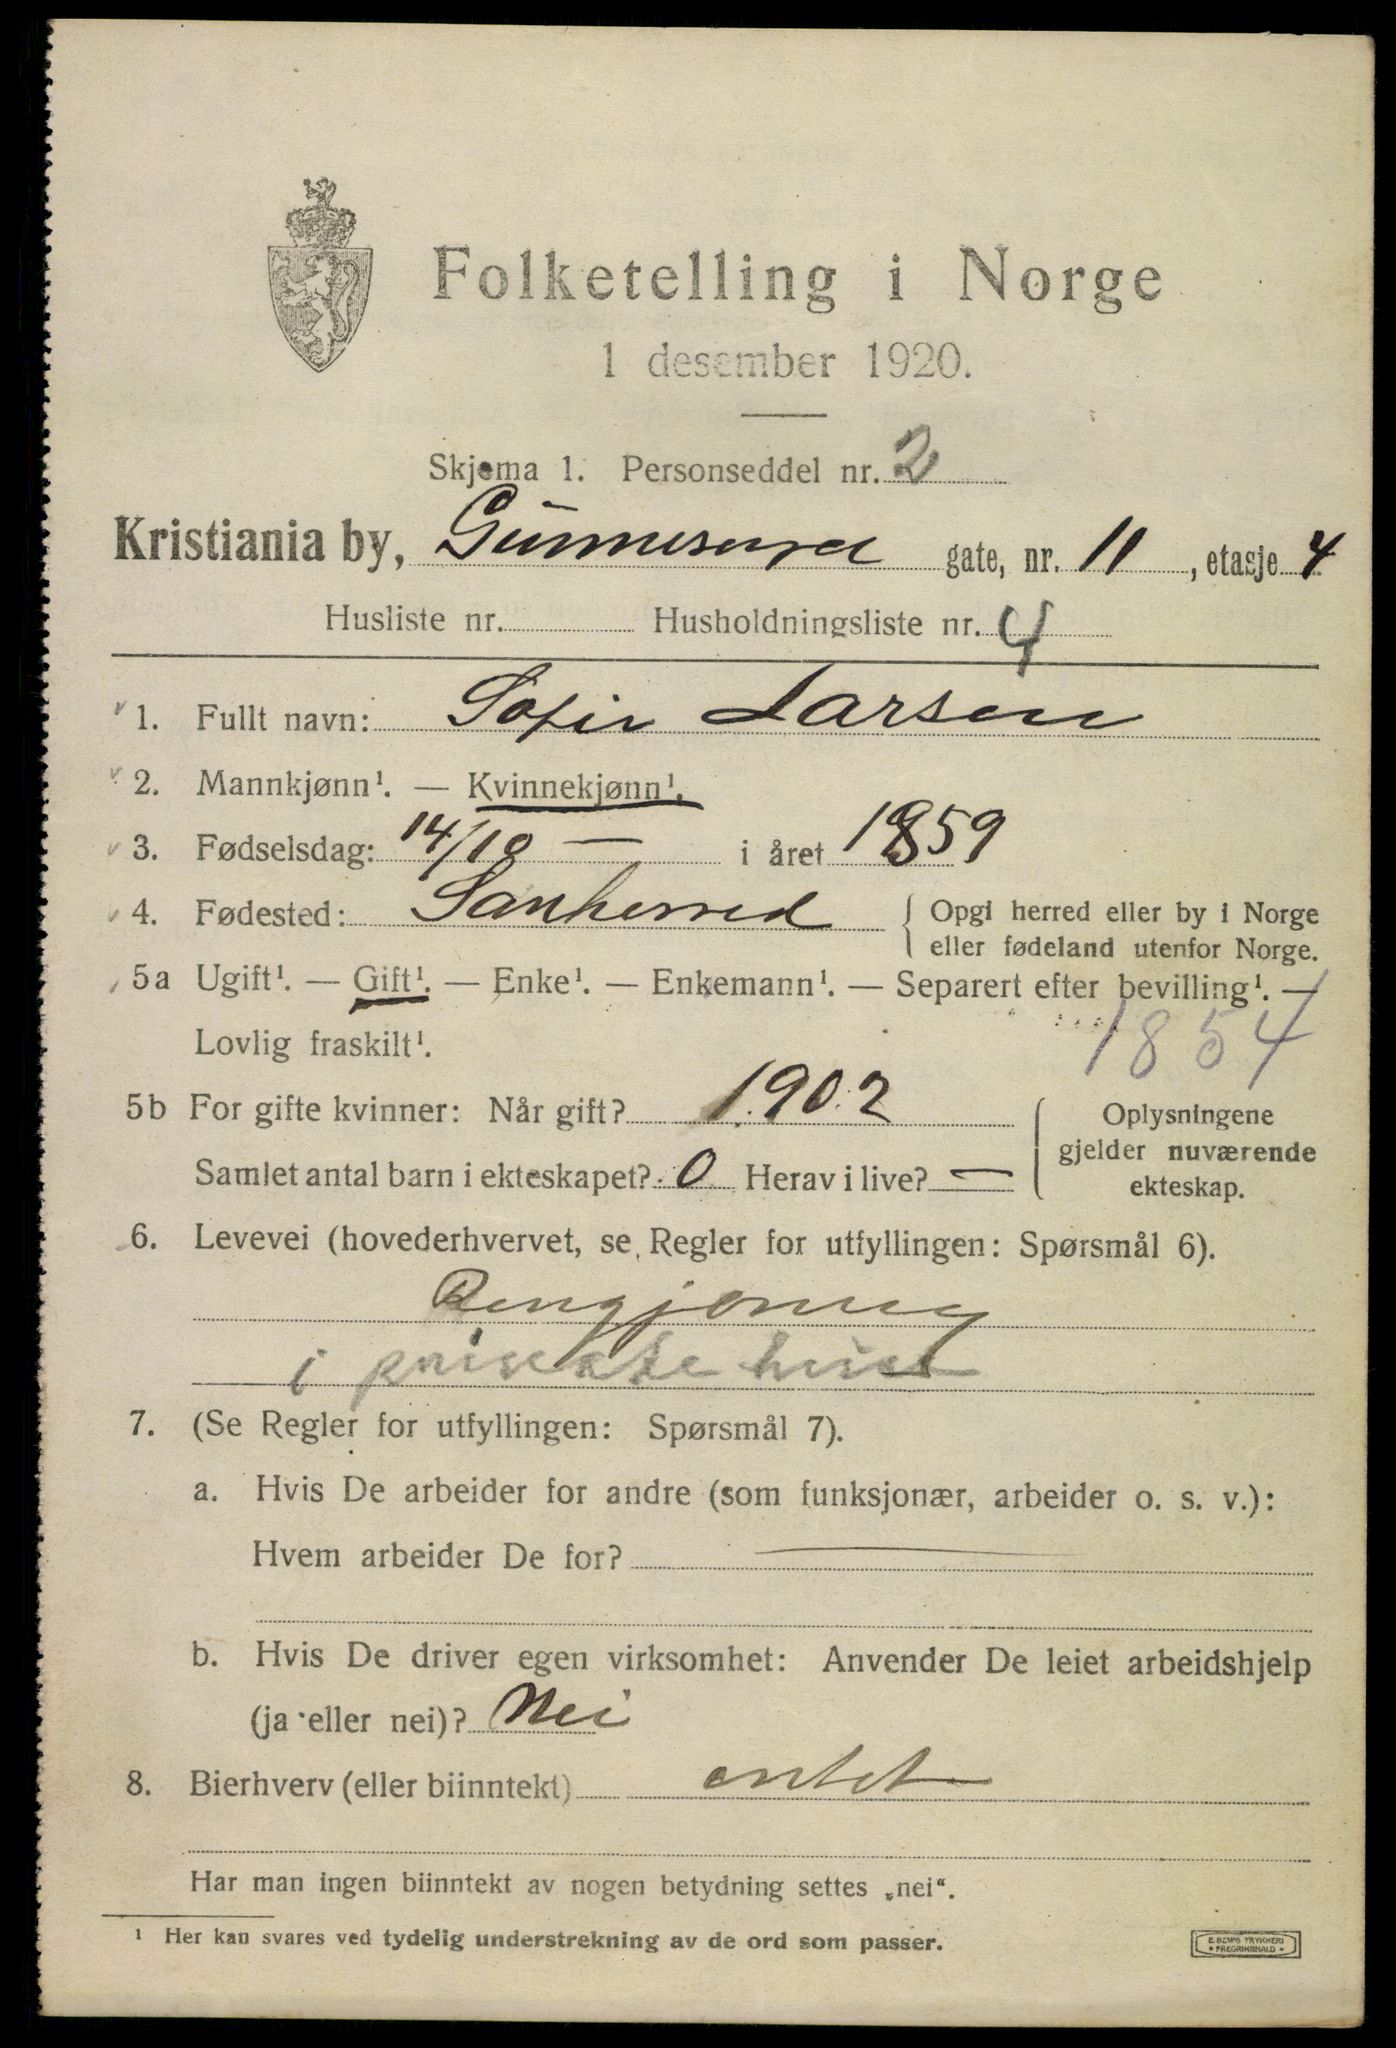 Folketelling i Norge
1 desember 1920.
Skjema 1. Personseddel nr. 2
Kristiania by, gate, nr. 11, etasje 4
Husliste nr. Husholdningsliste nr. 4
1. Fullt navn: Sofie Larsen
2. Mannkjønn¹. — Kvinnekjønn¹.
3. Fødselsdag: 14/10 — i året 1859
4. Fødested: Sanherred { Opgi herred eller by i Norge
eller fødeland utenfor Norge.
5a Ugift¹. — Gift¹. — Enke¹. — Enkemann¹. — Separert efter bevilling¹. —
Lovlig fraskilt¹. 1854
5b For gifte kvinner: Når gift? 1902 { Oplysningene
gjelder nuværende
Samlet antal barn i ekteskapet? 0 Herav i live? —
ekteskap.
6. Levevei (hovederhvervet, se Regler for utfyllingen: Spørsmål 6).
Rengjøring
i private hus
7. (Se Regler for utfyllingen: Spørsmål 7).
a. Hvis De arbeider for andre (som funksjonær, arbeider o. s. v.):
Hvem arbeider De for? —
b. Hvis De driver egen virksomhet: Anvender De leiet arbeidshjelp
(ja eller nei)? Nei
8. Bierhverv (eller biinntekt) intet
Har man ingen biinntekt av nogen betydning settes „nei“.
¹ Her kan svares ved tydelig understrekning av de ord som passer.
E. SEM'S TRYKKERI
* FREDRIKSHALD *